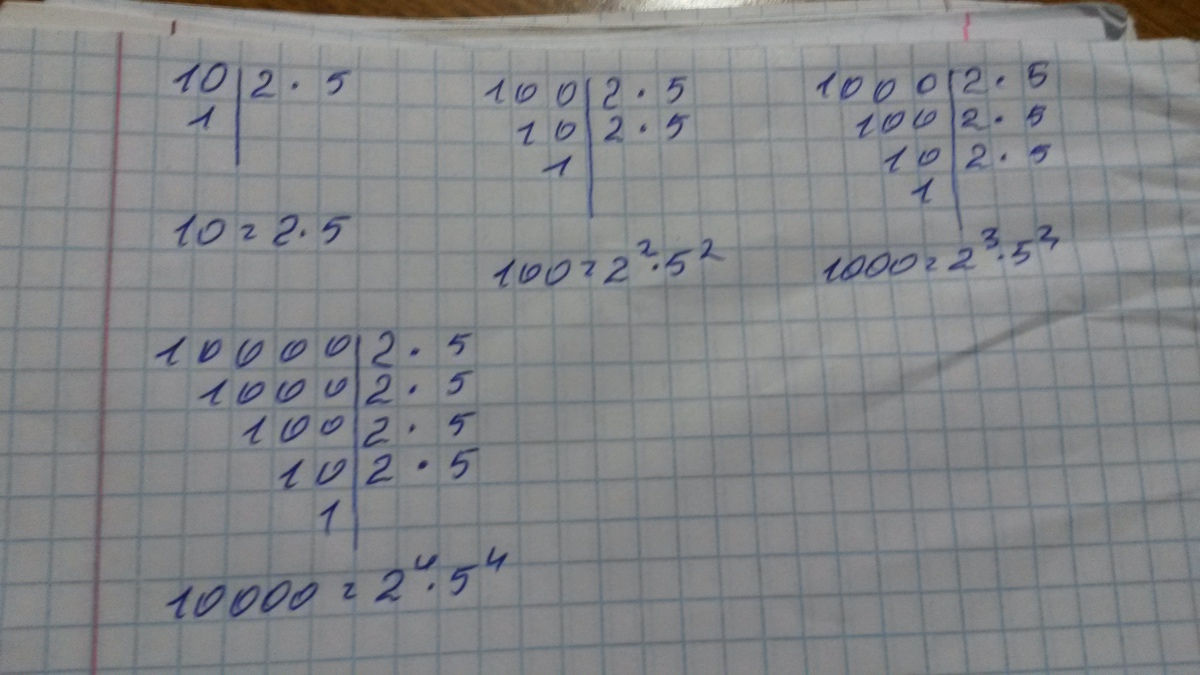 10 | 2 · 5
1 |
10 = 2 · 5
100 | 2 · 5
10 | 2 · 5
1 |
100 = 2² · 5²
1000 | 2 · 5
100 | 2 · 5
10 | 2 · 5
1 |
1000 = 2³ · 5³
10000 | 2 · 5
1000 | 2 · 5
100 | 2 · 5
10 | 2 · 5
1 |
10000 = 2⁴ · 5⁴